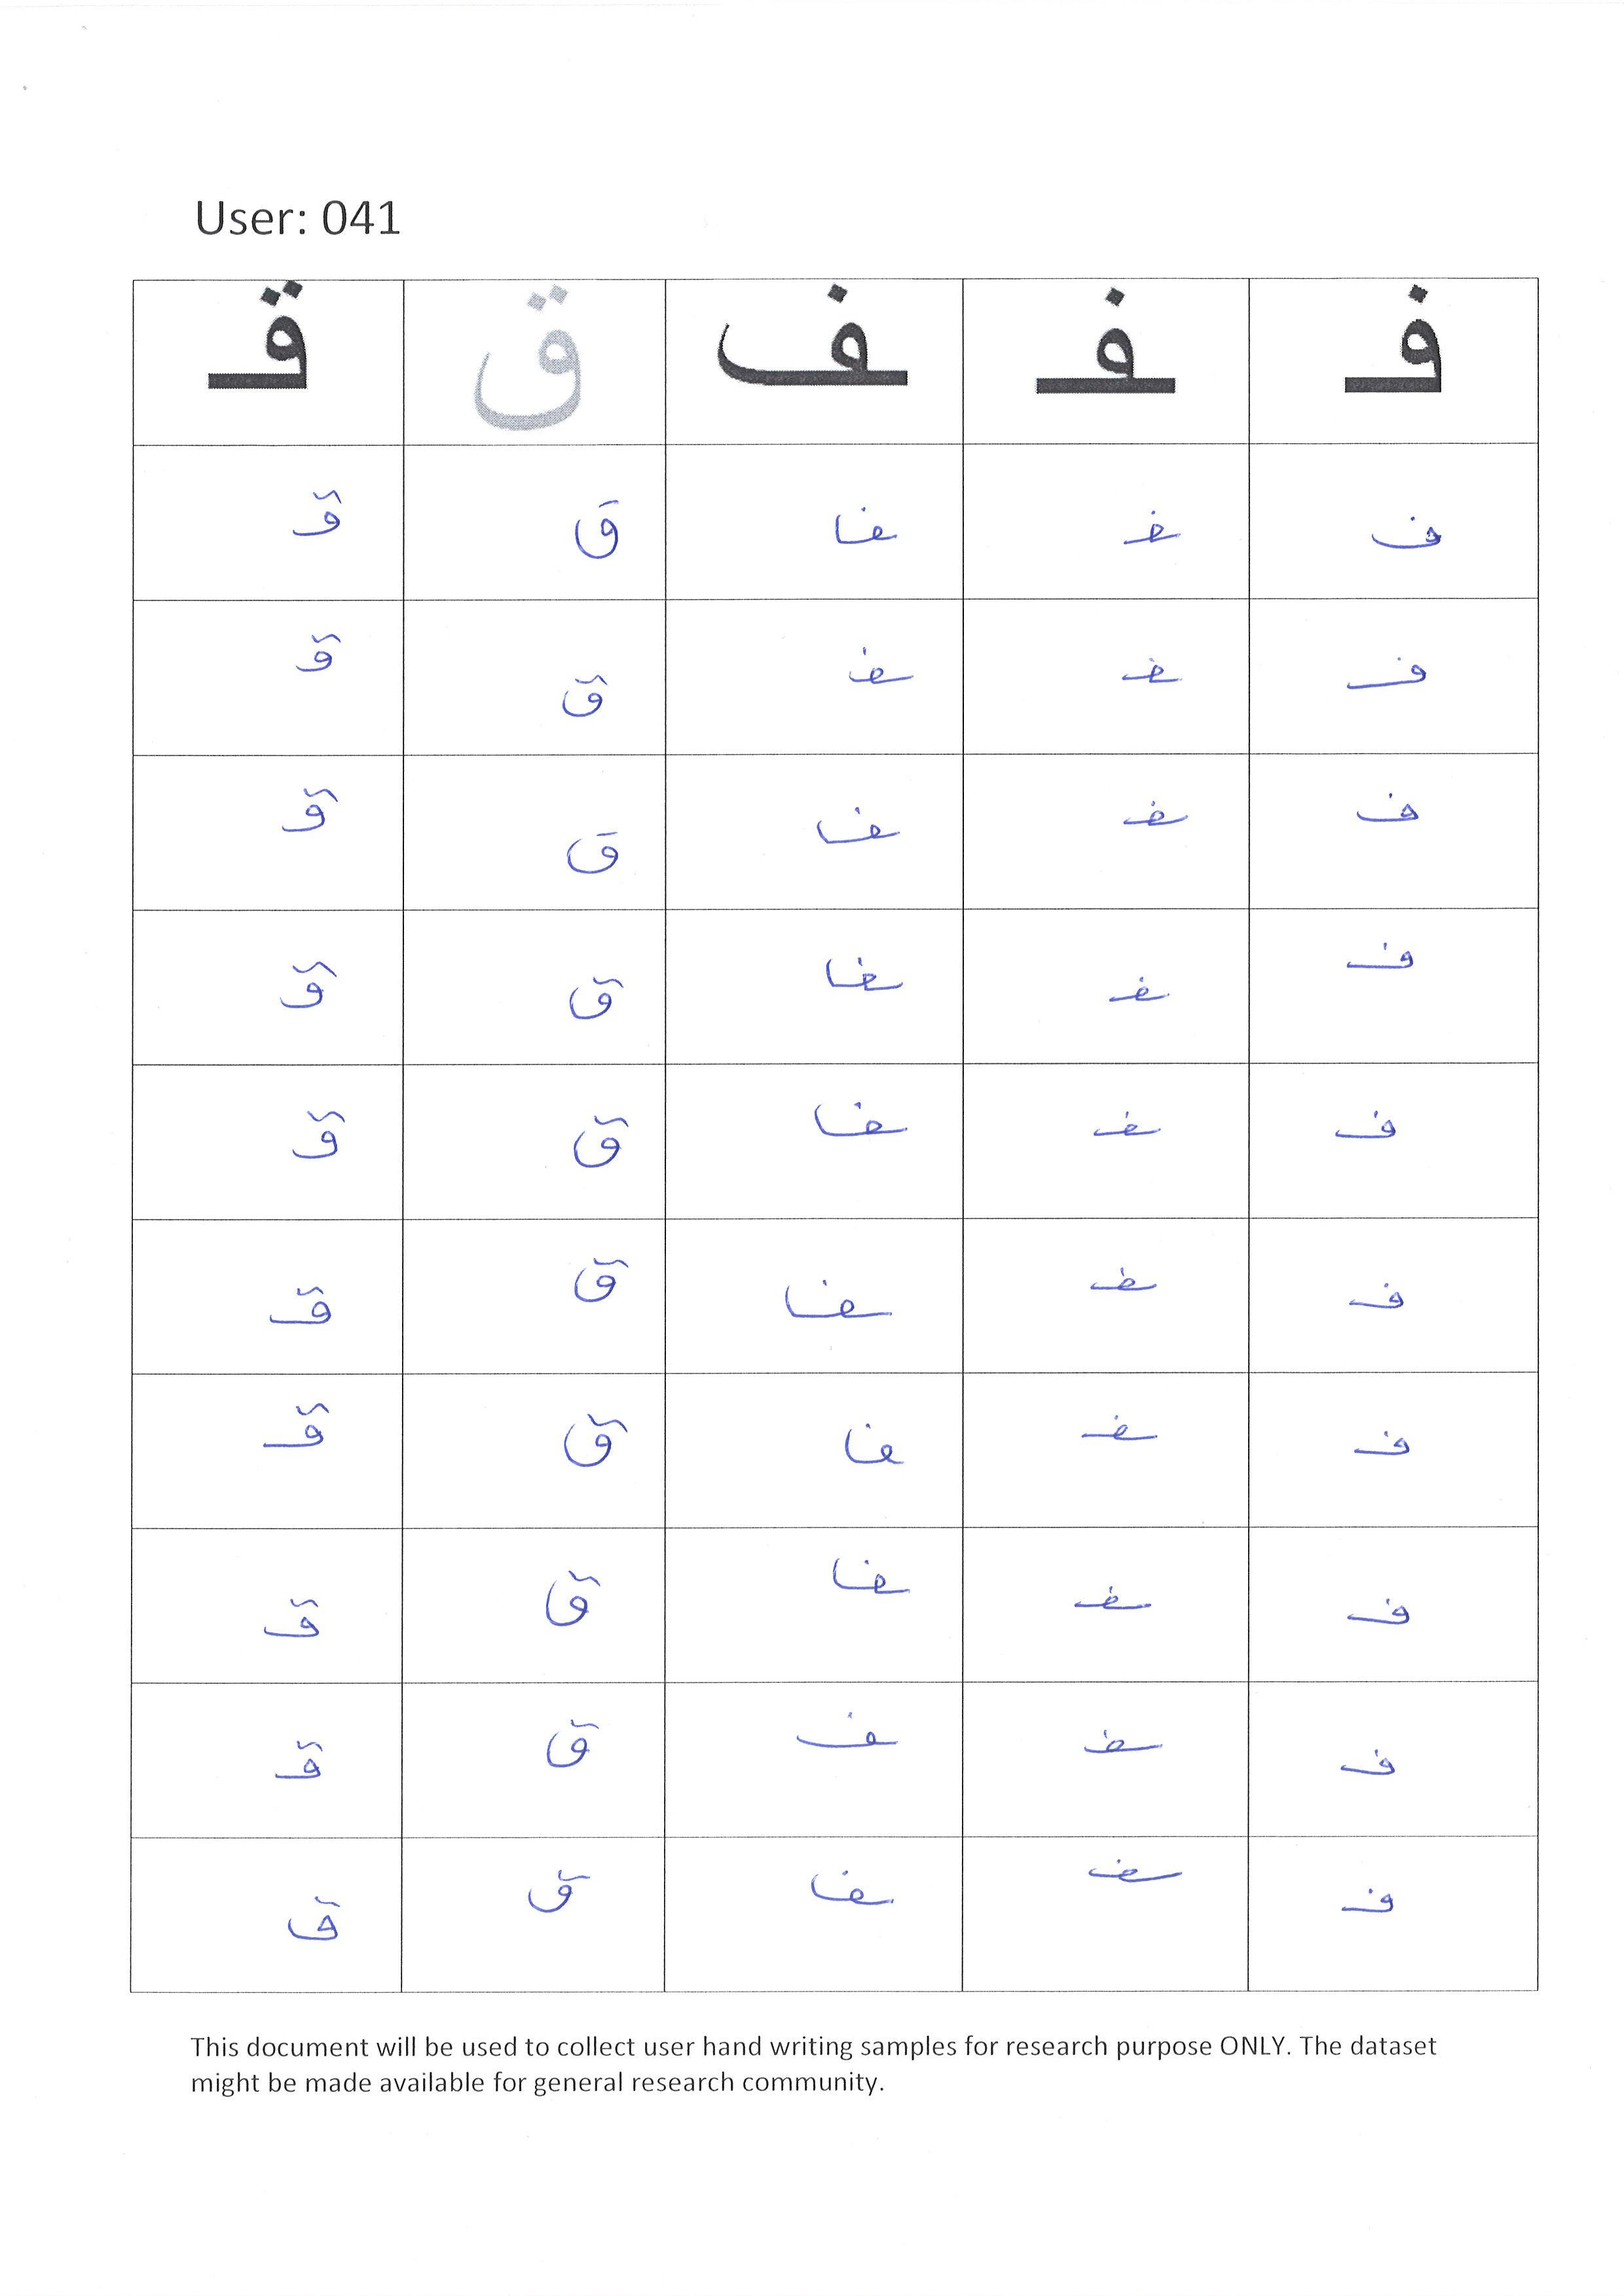 User: 041
فـ ـفـ ـف ق قـ
فـ ـفـ ـف ق قـ
فـ ـفـ ـف ق قـ
فـ ـفـ ـف ق قـ
فـ ـفـ ـف ق قـ
فـ ـفـ ـف ق قـ
فـ ـفـ ـف ق قـ
فـ ـفـ ـف ق قـ
فـ ـفـ ـف ق قـ
فـ ـفـ ـف ق قـ
فـ ـفـ ـف ق قـ
This document will be used to collect user hand writing samples for research purpose ONLY. The dataset
might be made available for general research community.